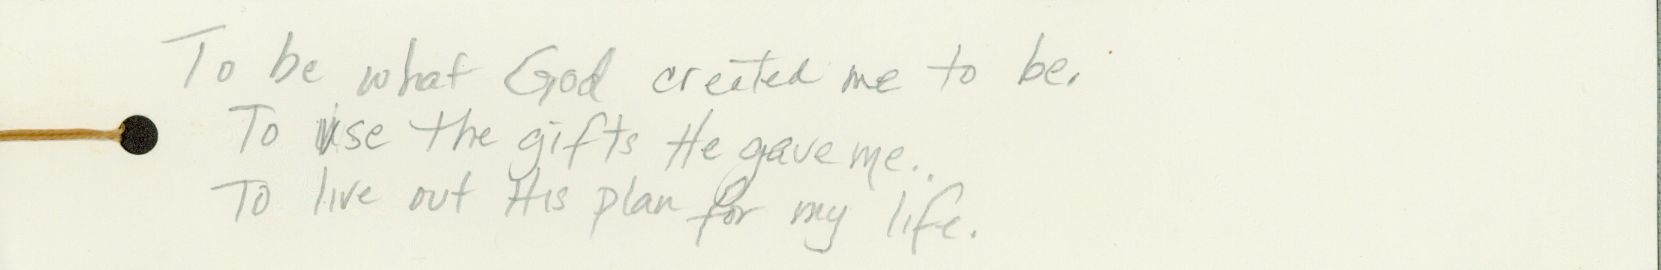 To be what God created me to be.
To use the gifts He gave me..
To live out His plan for my life.